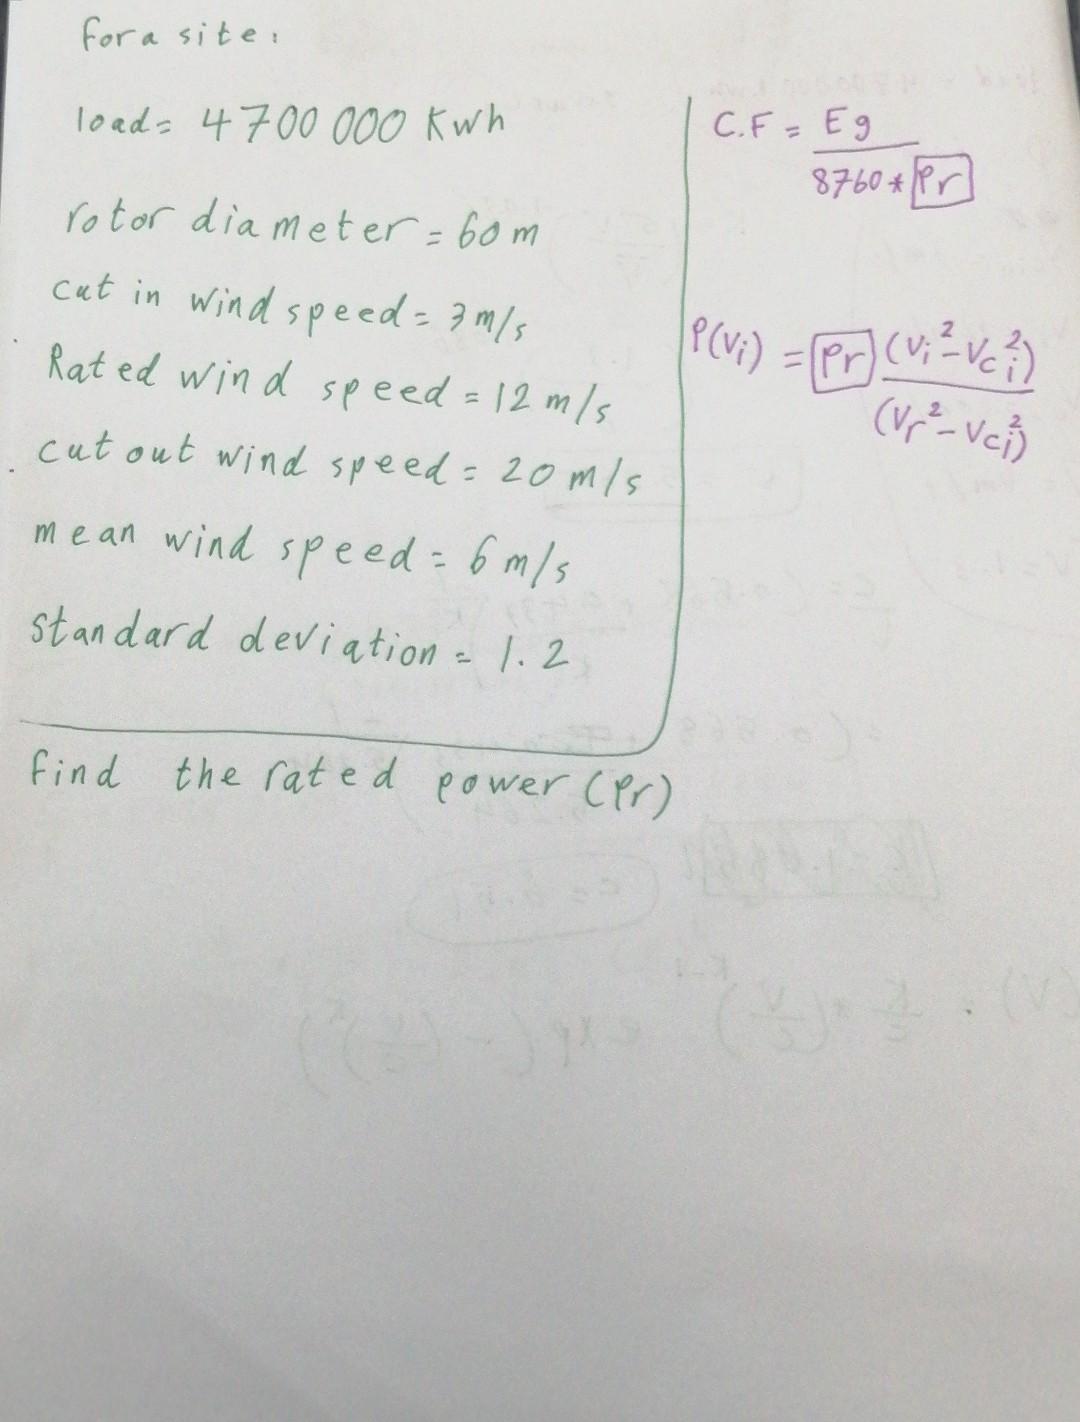 For a site:
load = 4700 000 Kwh
rotor diameter = 60 m
cut in wind speed = 3 m/s
Rated wind speed = 12 m/s
cut out wind speed = 20 m/s
mean wind speed = 6 m/s
standard deviation = 1.2
find the rated power (Pr)
C.F = Eg
8760 * Pr
P(Vi) = Pr (Vi² - Vci²)
(Vr² - Vci²)